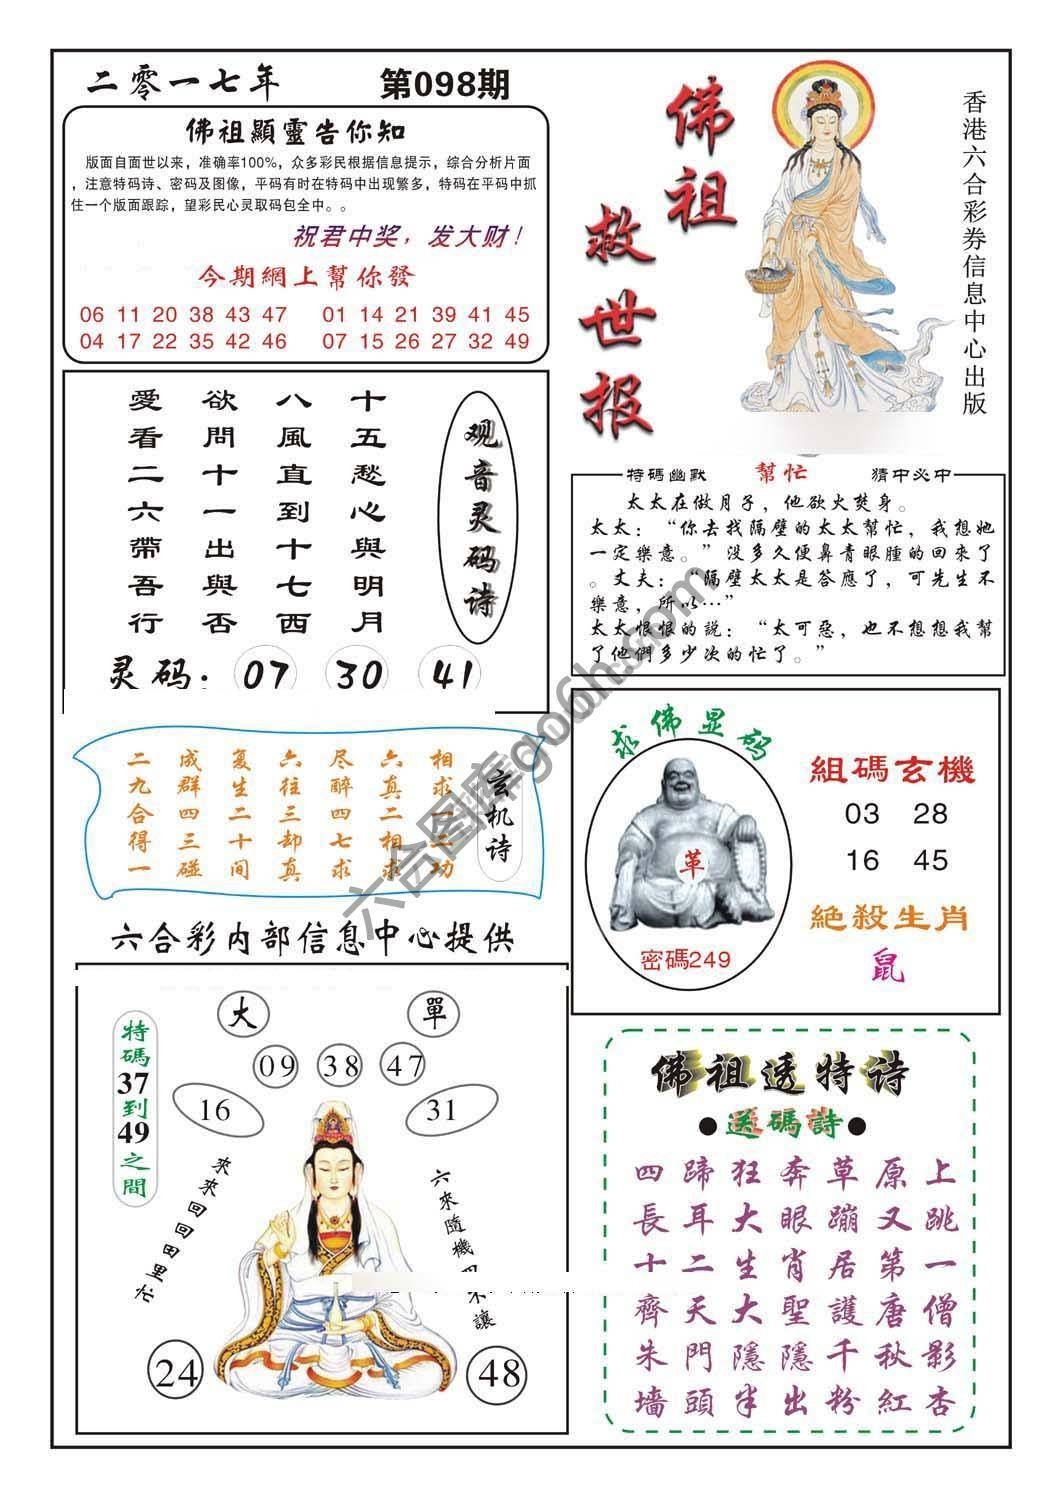 二零一七年 第098期
佛祖顯靈告你知
版面自面世以来，准确率100%，众多彩民根据信息提示，综合分析片面
，注意特码诗、密码及图像，平码有时在特码中出现繁多，特码在平码中抓
住一个版面跟踪，望彩民心灵取码包全中。。
祝君中奖，发大财！
今期網上幫你發
06 11 20 38 43 47 01 14 21 39 41 45
04 17 22 35 42 46 07 15 26 27 32 49
佛祖
救世报
香港六合彩券信息中心出版
观音灵码诗
十五愁心與明月
八風直到十七西
欲問十一出與否
愛看二六帶吾行
灵码：07 30 41
特碼幽默 幫忙 猜中必中
太太在做月子，他欲火焚身。
太太：“你去找隔壁的太太幫忙，我想她
一定樂意。”没多久便鼻青眼腫的回來了
。丈夫：“隔壁太太是答應了，可先生不
樂意，所以…”
太太恨恨的說：“太可惡，也不想想我幫
了他們多少次的忙了。”
玄机诗
相求一二功
六真二相求
尽醉四七求
六往三却真
复生二十间
成群四三碰
二九合得一
求佛显码
革
密碼249
組碼玄機
03 28
16 45
絶殺生肖
鼠
六合彩内部信息中心提供
大 單
09 38 47
16 31
特碼37到49之間
來來回回田里芒
六來隨機
讓
24 48
佛祖透特诗
●送碼詩●
四蹄狂奔草原上
長耳大眼蹦又跳
十二生肖居第一
齊天大聖護唐僧
朱門隱隱千秋影
墻頭半出粉紅杏
六合图库go6h.com